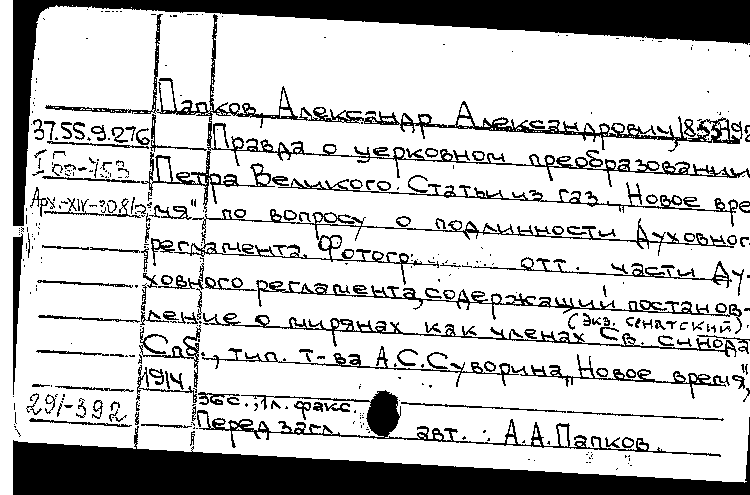 Папков, Александр Александрович, 1855-192
37.55.9.276 Правда о церковном преобразовании
I Бо-753 Петра Великого. Статьи из газ. „Новое вре
Арх.-XIV-308/2 мя" по вопросу о подлинности Духовног
регламента. Фотогр. отт. части Ду-
ховного регламента, содержащий постанов-
ление о мирянах как членах Св. Синода
(экз. сенатский).
Спб., тип. т-ва А.С.Суворина „Новое время",
1914.
291-392 36с.; 1л. факс.
Перед загл. авт.: А.А.Папков.